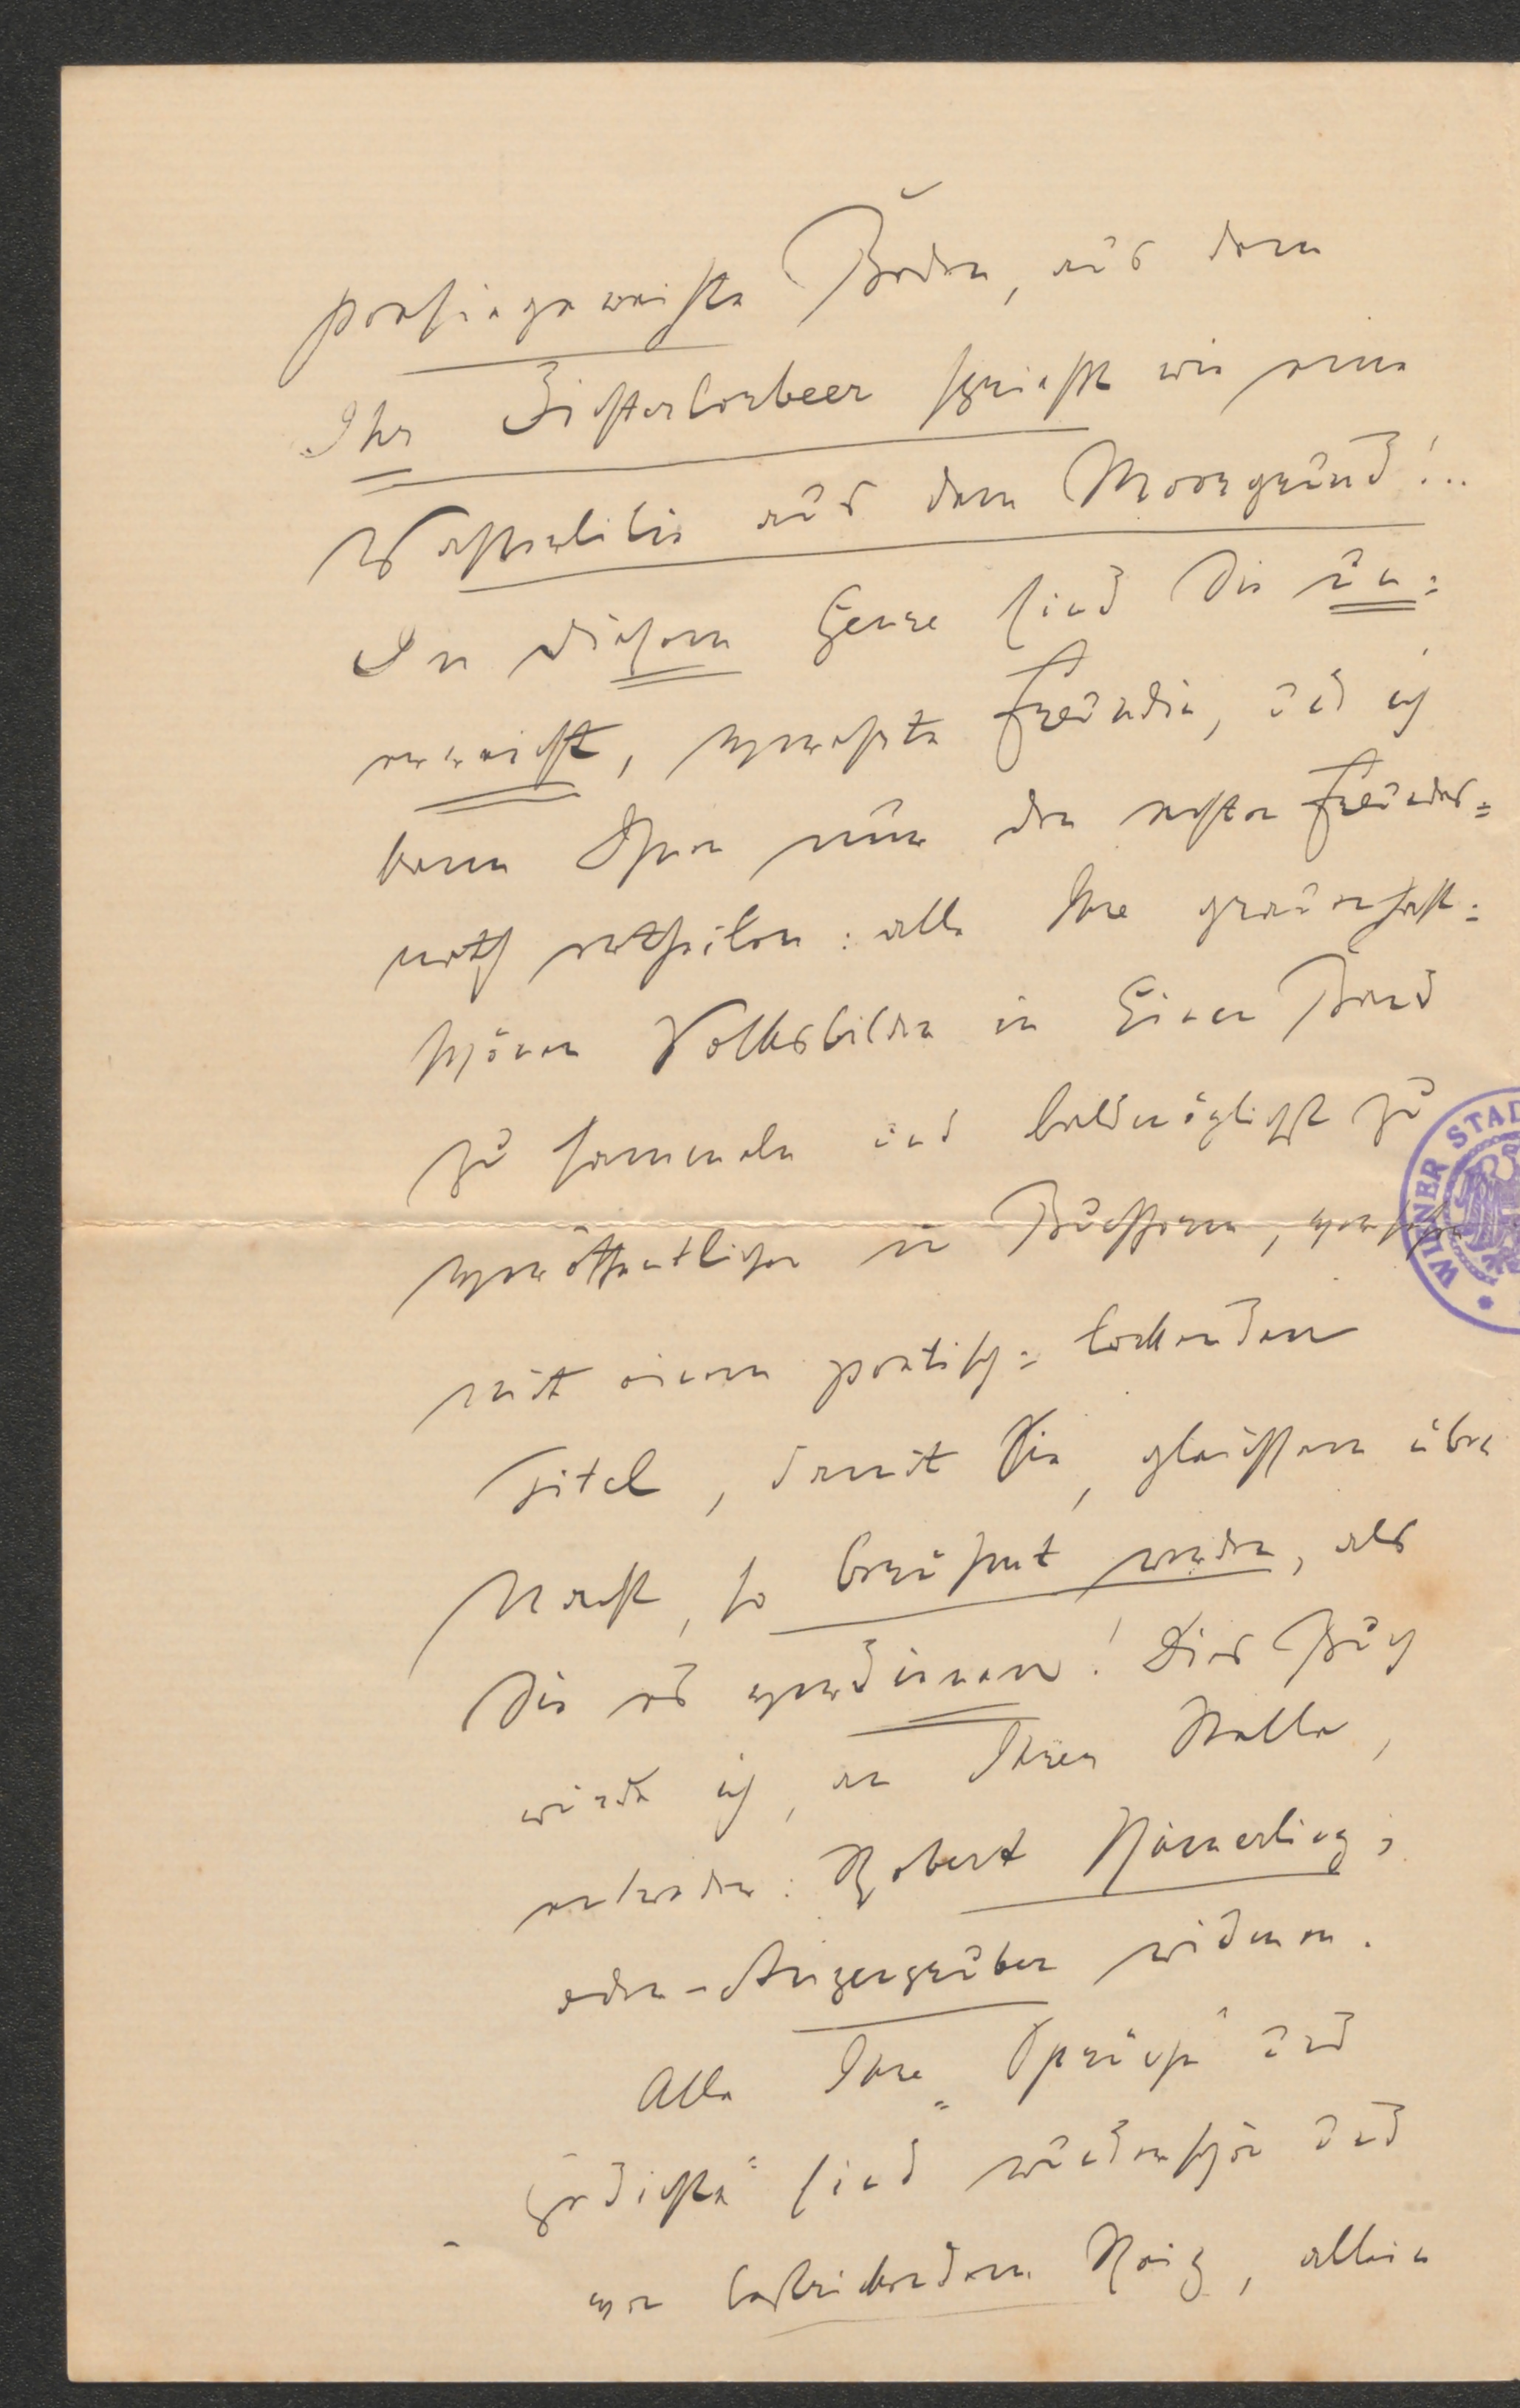 poesiegeweihte Boden, aus dem
Ihr Dichterlorbeer sprießt wie eine
Wasserlilie aus dem Moorgrund!..
In diesem Genre sind Sie un=
erreicht, verehrte Freundin, und ich
kann Ihnen nur den besten Freundes=
rath ertheilen: alle Ihre
schönen Volksbilder in Einen Band
zu sammeln und baldmöglichst zu
veröffentlichen in Buchform, versehen
mit einem poetisch=lockenden
Titel, damit Sie, gleichsam über
Nacht, so berühmt werden, als
Sie es verdienen! Dies Buch
würde ich, an Ihrer Stelle,
entweder: Robert Hamerling,
oder - Anzengruber widmen.
Alle Ihre „Sprüche und
Gedichte" sind wunderschön und
von bestrickendem Reiz, allein
WIENER STAD